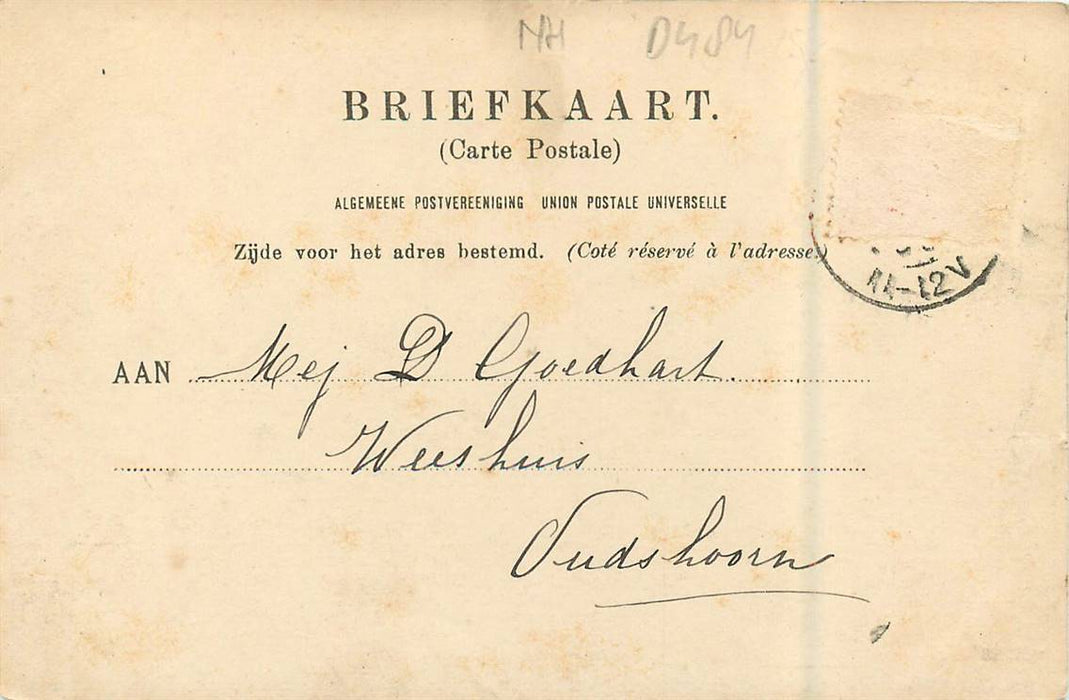 NH D484
BRIEFKAART.
(Carte Postale)
ALGEMEENE POSTVEREENIGING UNION POSTALE UNIVERSELLE
Zijde voor het adres bestemd. (Coté réservé à l'adresse.)
11-12V
AAN Mej D Goedhart.
Weeshuis
Oudshoorn